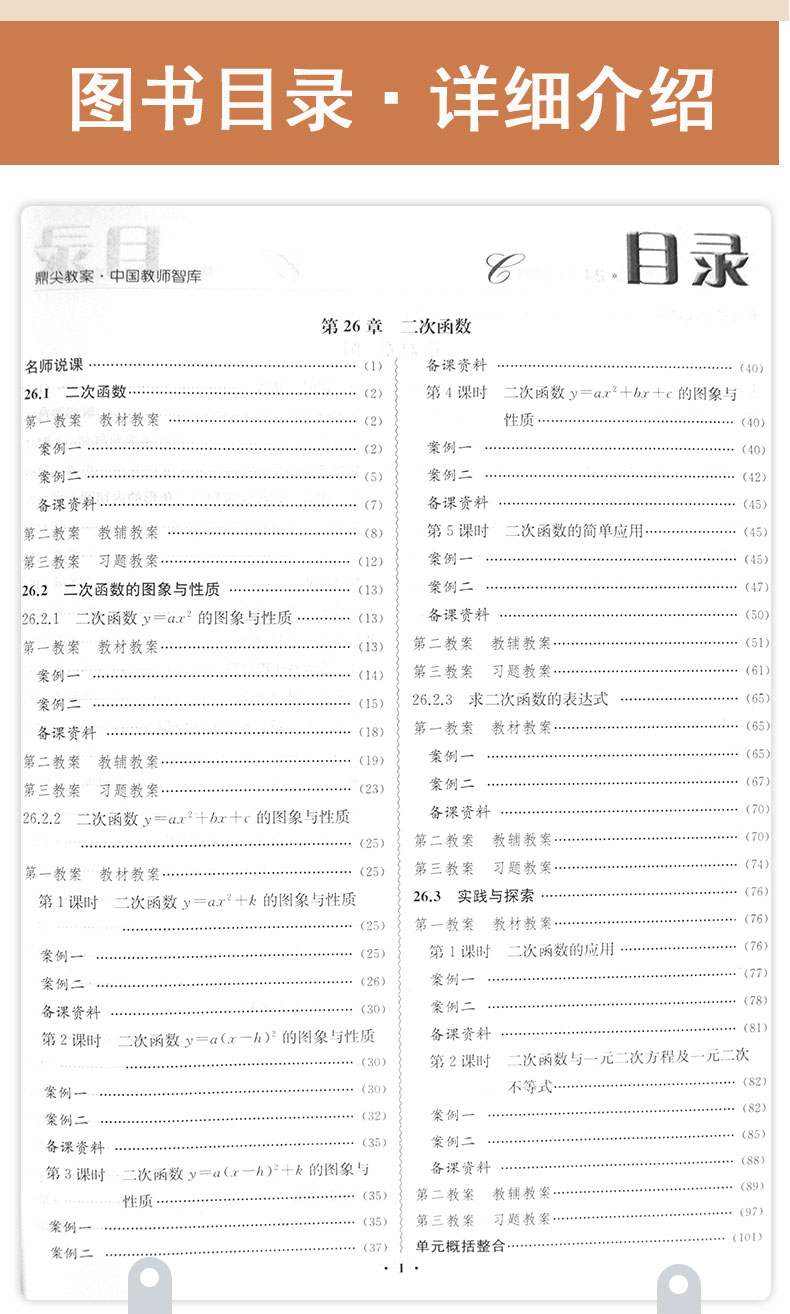 图书目录·详细介绍
鼎尖教案·中国教师智库
目录
第26章 二次函数
名师说课 (1)
26.1 二次函数 (2)
第一教案 教材教案 (2)
案例一 (2)
案例二 (5)
备课资料 (7)
第二教案 教辅教案 (8)
第三教案 习题教案 (12)
26.2 二次函数的图象与性质 (13)
26.2.1 二次函数 y=ax² 的图象与性质 (13)
第一教案 教材教案 (13)
案例一 (14)
案例二 (15)
备课资料 (18)
第二教案 教辅教案 (19)
第三教案 习题教案 (23)
26.2.2 二次函数 y=ax²+bx+c 的图象与性质
(25)
第一教案 教材教案 (25)
第1课时 二次函数 y=ax²+k 的图象与性质
(25)
案例一 (25)
案例二 (26)
备课资料 (30)
第2课时 二次函数 y=a(x-h)² 的图象与性质
(30)
案例一 (30)
案例二 (32)
备课资料 (35)
第3课时 二次函数 y=a(x-h)²+k 的图象与
性质 (35)
案例一 (35)
案例二 (37)
备课资料 (40)
第4课时 二次函数 y=ax²+bx+c 的图象与
性质 (40)
案例一 (40)
案例二 (42)
备课资料 (45)
第5课时 二次函数的简单应用 (45)
案例一 (45)
案例二 (47)
备课资料 (50)
第二教案 教辅教案 (51)
第三教案 习题教案 (61)
26.2.3 求二次函数的表达式 (65)
第一教案 教材教案 (65)
案例一 (65)
案例二 (67)
备课资料 (70)
第二教案 教辅教案 (70)
第三教案 习题教案 (74)
26.3 实践与探索 (76)
第一教案 教材教案 (76)
第1课时 二次函数的应用 (76)
案例一 (77)
案例二 (78)
备课资料 (81)
第2课时 二次函数与一元二次方程及一元二次
不等式 (82)
案例一 (82)
案例二 (85)
备课资料 (88)
第二教案 教辅教案 (89)
第三教案 习题教案 (97)
单元概括整合 (101)
· 1 ·